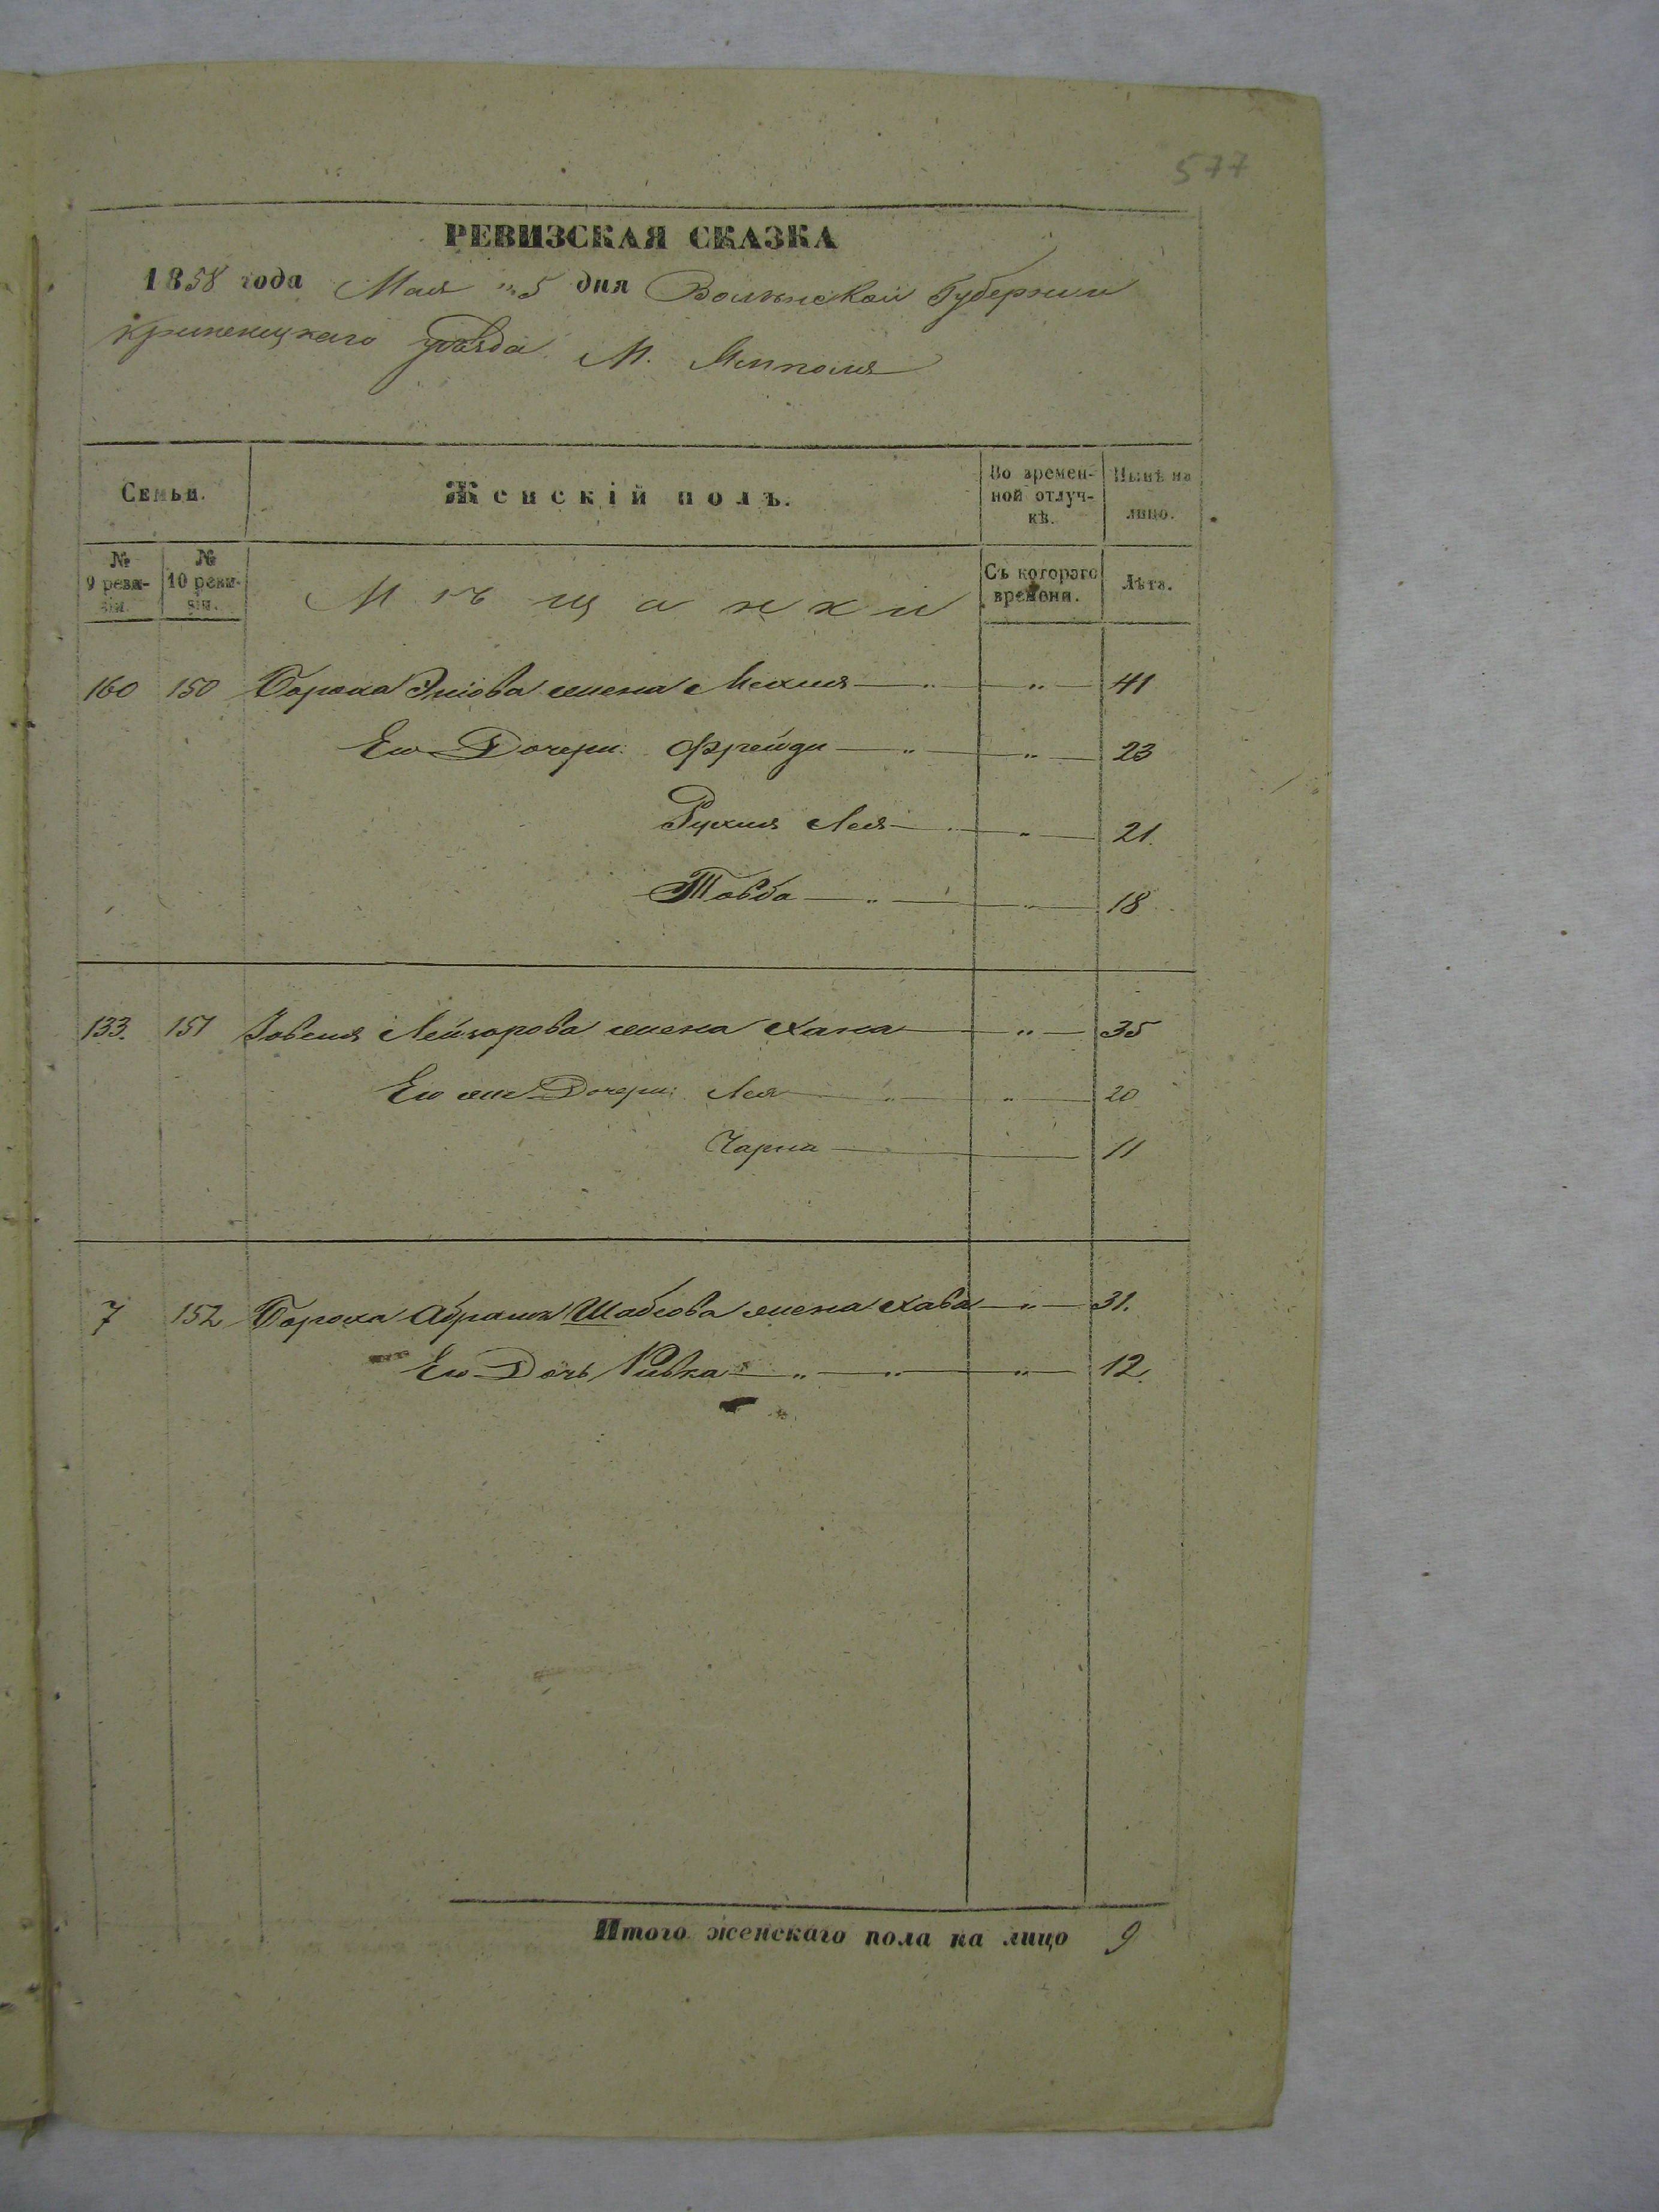 577
РЕВИЗСКАЯ СКАЗКА
1858 года Мая "5 дня Волынской Губернии
Кременецкаго уѣзда М. Ямполя
Семьи.
Женскій полъ.
Во времен-
ной отлуч-
кѣ.
Нынѣ на
лицо.
№
9 реви-
зіи.
№
10 реви-
зіи.
Мѣщанки
Съ котораго
времени.
Лѣта.
160 150 Бороха жена Мехля — " — " — 41
Его Дочери: Фрейди — " — " — 23
Рухля Лея — " — " — 21.
Товба — " — " — 18
133. 151 Лейзорова жена Хана — " — 35
Его же Дочери: Лея — " — " — 20
Чарна — 11
7 152 Бороха Абрама Шабсова жена Хава — " — 31.
Его Дочь Ривка — " — " — " — 12.
Итого женскаго пола на лицо 9